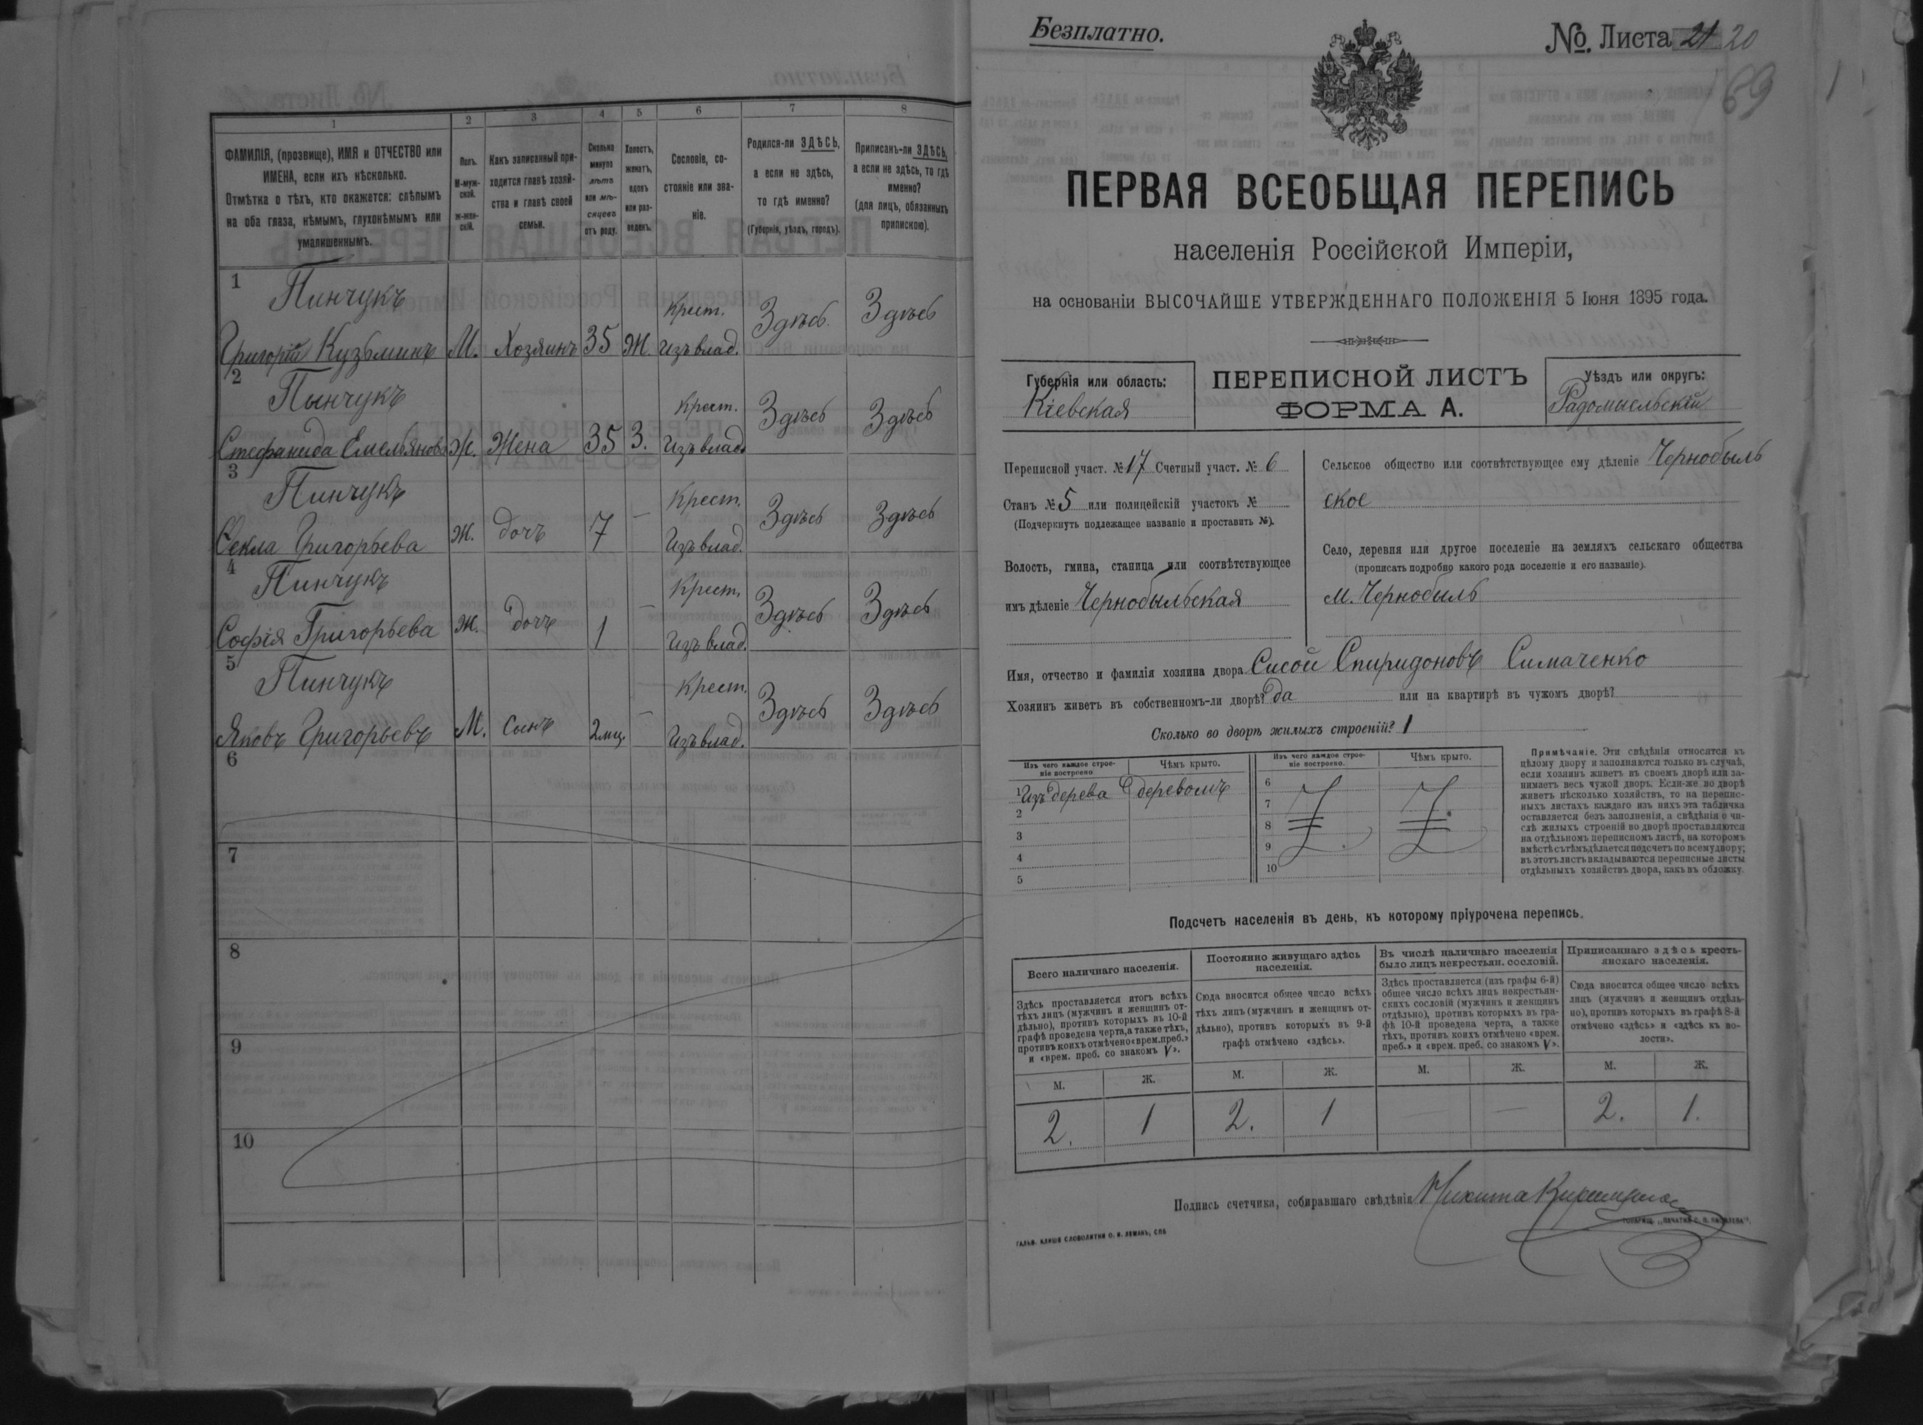 1
2
3
4
5
6
7
8
ФАМИЛІЯ, (прозвище), ИМЯ и ОТЧЕСТВО или
ИМЕНА, если ихъ нѣсколько.
Отмѣтка о тѣхъ, кто окажется: слѣпымъ
на оба глаза, нѣмымъ, глухонѣмымъ или
умалишеннымъ.
Полъ.
М-муж-
ской.
ж-жен-
скій.
Какъ записанный при-
ходится главѣ хозяй-
ства и главѣ своей
семьи.
Сколько
минуло
лѣтъ
или мѣ-
сяцевъ
отъ роду.
Холостъ,
женатъ,
вдовъ
или раз-
веденъ.
Сословіе, со-
стояніе или зва-
ніе.
Родился-ли ЗДѢСЬ,
а если не здѣсь,
то гдѣ именно?
(Губернія, уѣздъ, городъ).
Приписанъ-ли ЗДѢСЬ,
а если не здѣсь, то гдѣ
именно?
(для лицъ, обязанныхъ
припискою).
1
Пинчукъ Крест.
Григорій Кузьминъ М. Хозяинъ 35 Ж. Изъ влад. Здѣсь Здѣсь
2
Пынчукъ Крест.
Стефанида Емельянова Ж. Жена 35 З. Изъ влад. Здѣсь Здѣсь
3
Пинчукъ Крест.
Секла Григорьева Ж. дочь 7 — Изъ влад. Здѣсь Здѣсь
4
Пинчукъ Крест.
Софія Григорьева Ж. дочь 1 — Изъ влад. Здѣсь Здѣсь
5
Пинчукъ Крест.
Яковъ Григорьевъ М. сынъ 2 мц. — Изъ влад. Здѣсь Здѣсь
6
7
8
9
10
Безплатно.
№. Листа 21 20
69
ПЕРВАЯ ВСЕОБЩАЯ ПЕРЕПИСЬ
населенія Россійской Имперіи,
на основаніи ВЫСОЧАЙШЕ УТВЕРЖДЕННАГО ПОЛОЖЕНІЯ 5 Іюня 1895 года.
Губернія или область:
Кіевская
ПЕРЕПИСНОЙ ЛИСТЪ
ФОРМА А.
Уѣздъ или округъ:
Радомысльскій
Переписной участ. № 17 Счетный участ. № 6
Станъ № 5 или полицейскій участокъ №
(Подчеркнуть подлежащее названіе и проставить №).
Волость, гмина, станица или соотвѣтствующее
имъ дѣленіе Чернобыльская
Сельское общество или соотвѣтствующее ему дѣленіе Чернобыль
ское
Село, деревня или другое поселеніе на земляхъ сельскаго общества
(прописать подробно какого рода поселеніе и его названіе).
м. Чернобиль
Имя, отчество и фамилія хозяина двора Сисой Спиридоновъ Симаченко
Хозяинъ живетъ въ собственномъ-ли дворѣ? да или на квартирѣ въ чужомъ дворѣ?
Сколько во дворѣ жилыхъ строеній? 1
Изъ чего каждое строе-
ніе построено.
Чѣмъ крыто.
1 Изъ дерева деревомъ
2
3
4
5
Изъ чего каждое строе-
ніе построено.
Чѣмъ крыто.
6
7
8
9
10
Примѣчаніе. Эти свѣдѣнія относятся къ
цѣлому двору и заполняются только въ случаѣ,
если хозяинъ живетъ въ своемъ дворѣ или за-
нимаетъ весь чужой дворъ. Если-же во дворѣ
живетъ нѣсколько хозяйствъ, то на перепис-
ныхъ листахъ каждаго изъ нихъ эта табличка
оставляется безъ заполненія, а свѣдѣнія о чи-
слѣ жилыхъ строеній во дворѣ проставляются
на отдѣльномъ переписномъ листѣ, на которомъ
вмѣстѣ съ тѣмъ дѣлается подсчетъ по всему двору;
въ этотъ листъ вкладываются переписные листы
отдѣльныхъ хозяйствъ двора, какъ въ обложку.
Подсчетъ населенія въ день, къ которому пріурочена перепись.
Всего наличнаго населенія.
Здѣсь проставляется итогъ всѣхъ
тѣхъ лицъ (мужчинъ и женщинъ от-
дѣльно), противъ которыхъ въ 10-й
графѣ проведена черта, а также тѣхъ,
противъ коихъ отмѣчено «врем. преб.»
и «врем. преб. со знакомъ V».
Постоянно живущаго здѣсь
населенія.
Сюда вносится общее число всѣхъ
тѣхъ лицъ (мужчинъ и женщинъ от-
дѣльно), противъ которыхъ въ 9-й
графѣ отмѣчено «здѣсь».
Въ числѣ наличнаго населенія
было лицъ некрестьян. сословій.
Здѣсь проставляется (изъ графы 6-й)
общее число всѣхъ лицъ некрестьян-
скихъ сословій (мужчинъ и женщинъ
отдѣльно), противъ которыхъ въ гра-
фѣ 10-й проведена черта, а также
тѣхъ, противъ коихъ отмѣчено «врем.
преб.» и «врем. преб. со знакомъ V».
Приписаннаго здѣсь кресть-
янскаго населенія.
Сюда вносится общее число всѣхъ
лицъ (мужчинъ и женщинъ отдѣль-
но), противъ которыхъ въ графѣ 8-й
отмѣчено «здѣсь» и «здѣсь къ во-
лости».
М. Ж. М. Ж. М. Ж. М. Ж.
2. 1 2. 1 — — 2. 1.
Подпись счетчика, собиравшаго свѣдѣнія Никита
ГАЛЬВ. КЛИШЕ СЛОВОЛИТНИ О. И. ЛЕМАНЪ, СПБ